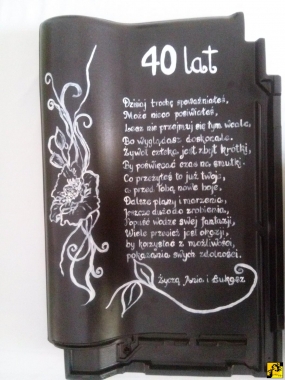 40 lat
Dzisiaj trochę spoważniałeś,
Może nieco posiwiałeś,
Lecz nie przejmuj się tym wcale,
Bo wyglądasz doskonale.
Żywot człeka jest zbyt krótki,
By poświęcać czas na smutki.
Co przeżyłeś to już Twoje,
a przed Tobą nowe boje.
Dalsze plany i marzenia,
Jeszcze dużo do zrobienia,
Popuść wodze swej fantazji,
Wiele przecież jest okazji,
by korzystać z możliwości,
pokazania swych zdolności.
Życzą Ania i Łukasz